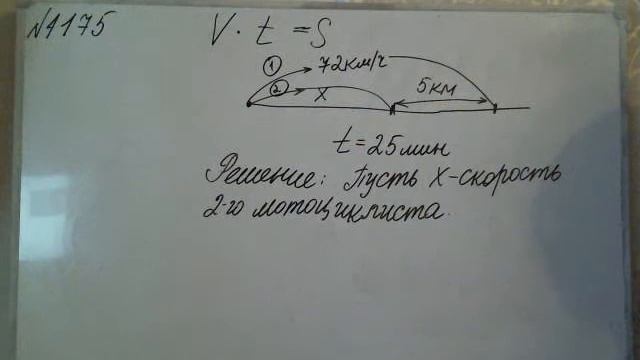 №1175
V · t = S
① 72км/ч
② x
5км
t = 25 мин
Решение: Пусть x-скорость
2-го мотоциклиста.